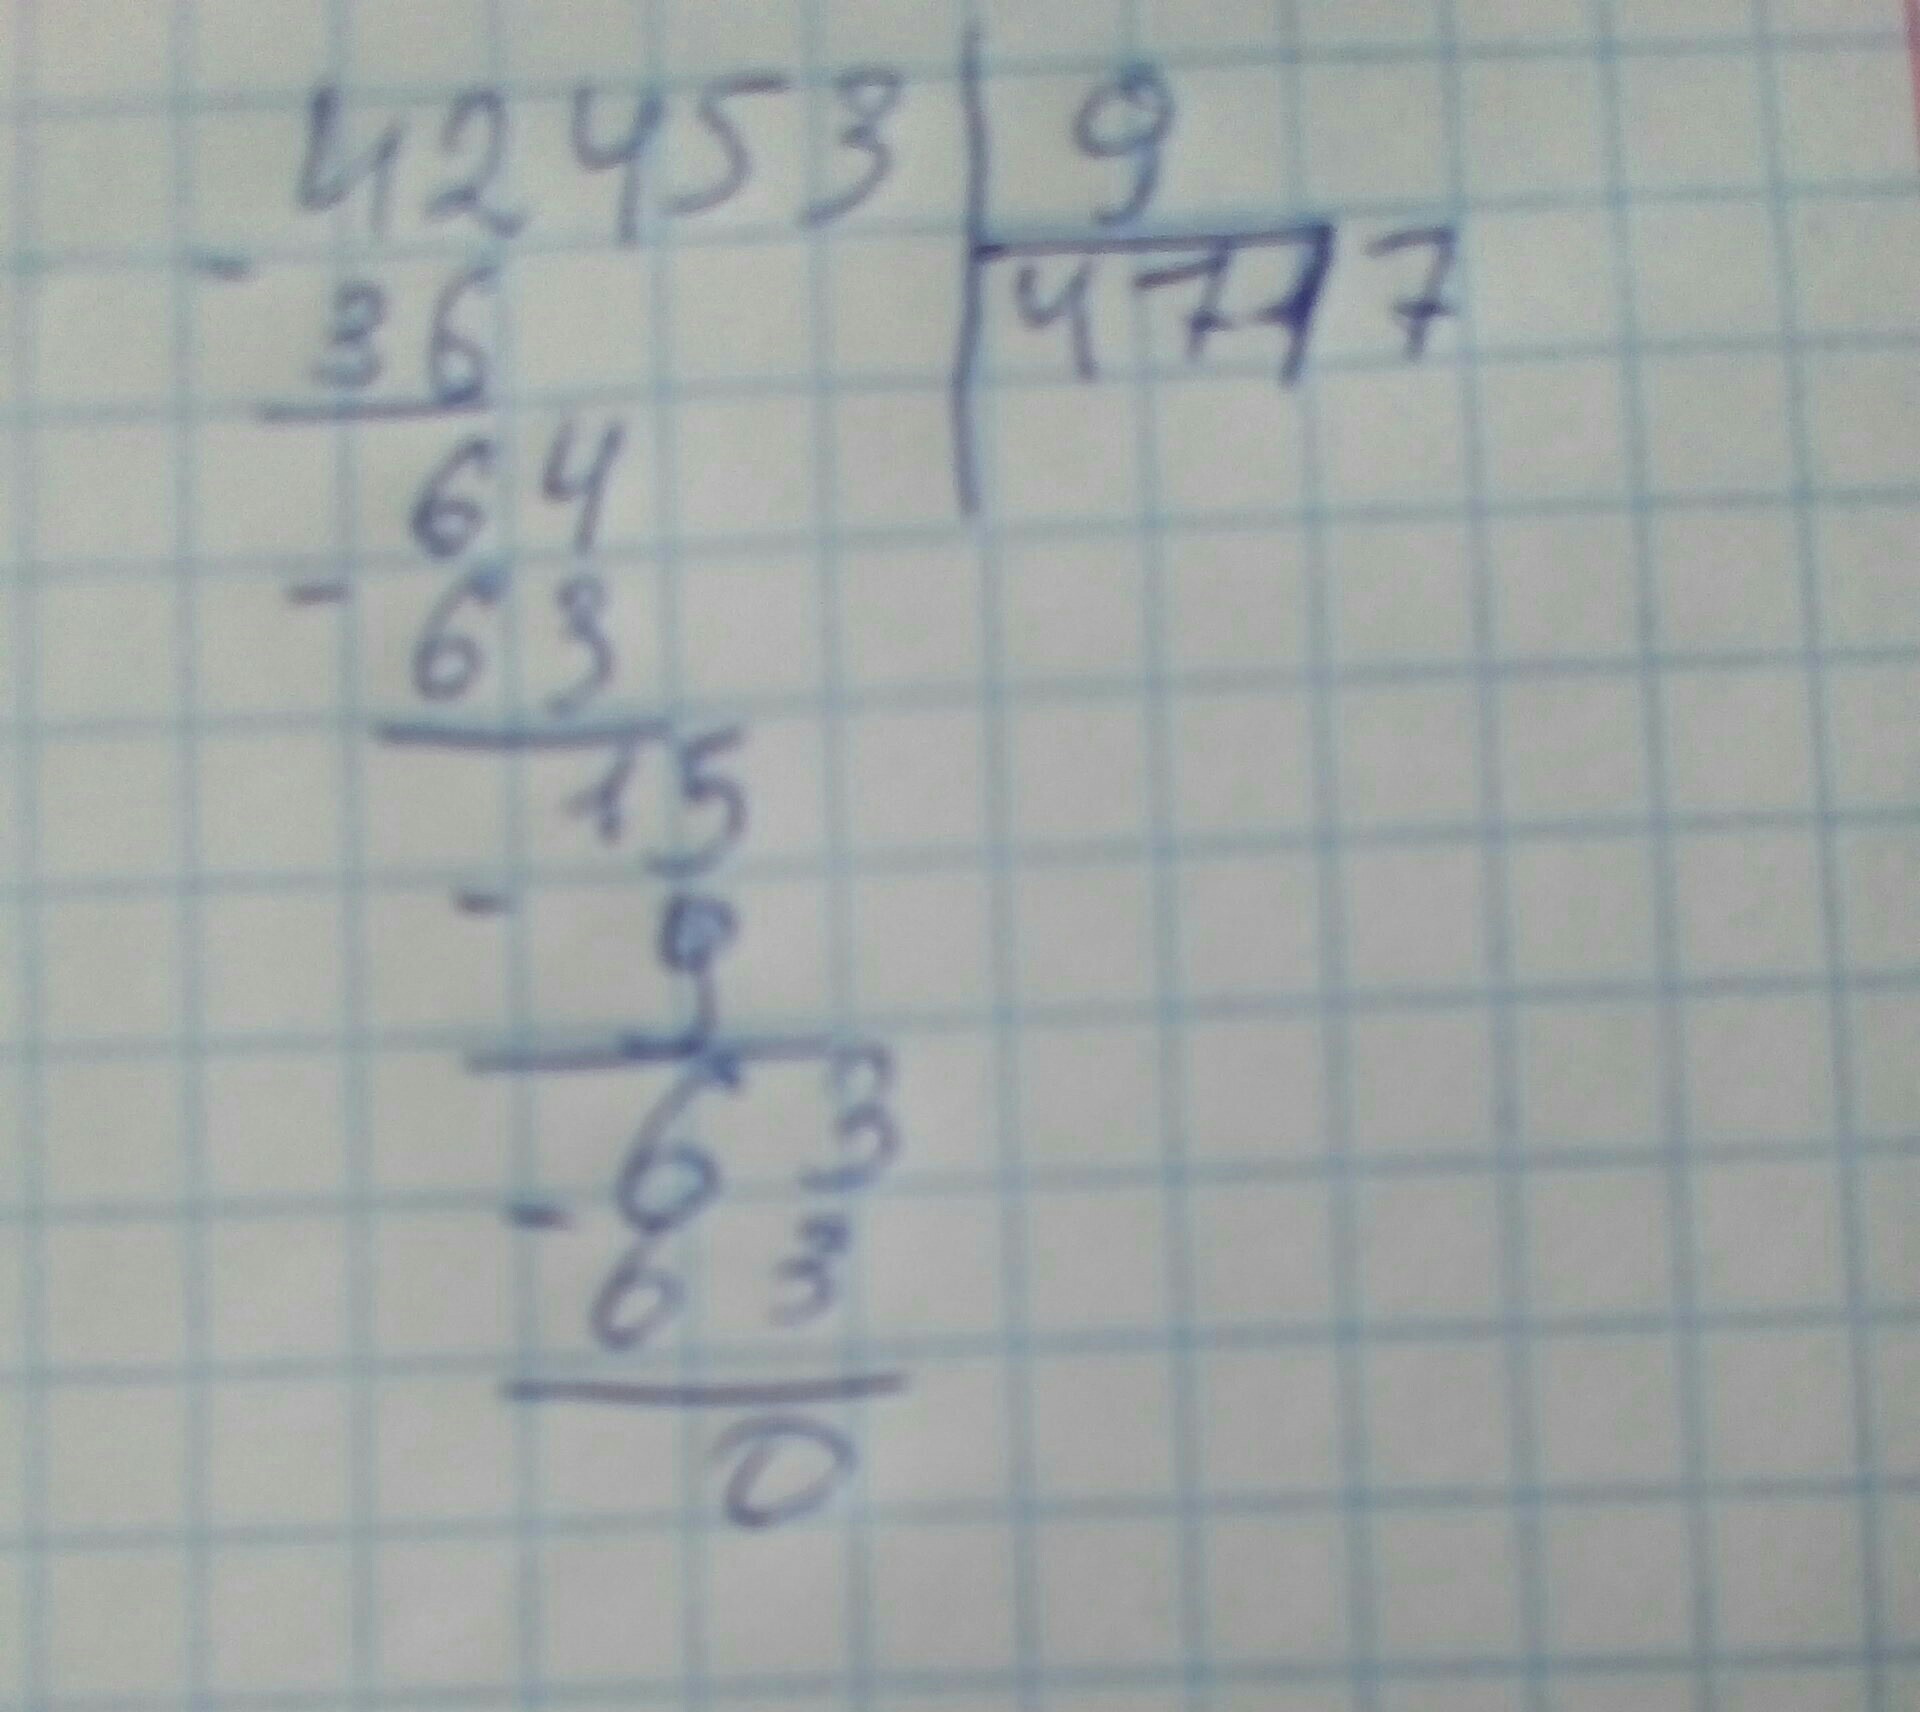 42453 | 9
- 36 | 4717
64
- 63
15
- 9
63
- 63
0